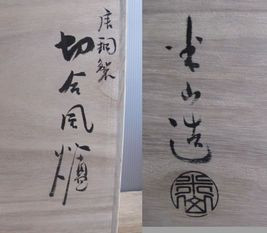 唐銅製
切合風爐
米山造